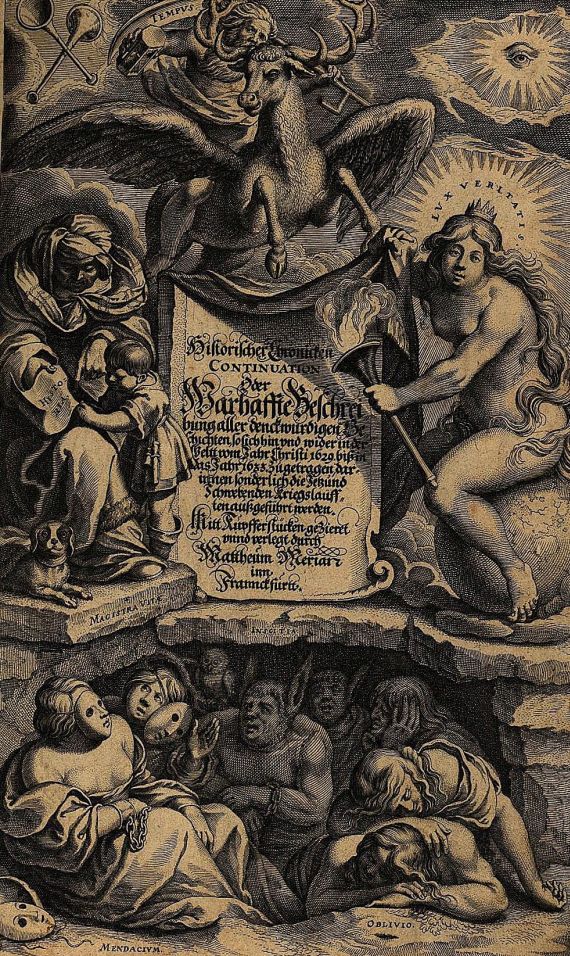 TEMPVS
LVX VERITATIS
HISTO
RIA
Historischer Chronicken
CONTINUATION
Oder
Warhaffte Beschrei
bung aller denckwürdigen Ge
schichten, so sich hin vnd wider in der
Welt, vom Jahr Christi 1629. biß in
das Jahr 1633. zugetragen dar-
innen sonderlich die Jetzund
Schwebenden Kriegslauff
ten außgeführt werden.
Mitt Kupfferstücken geZieret
vnnd verlegt durch
Mattheum Merian
inn
Franckfurtt.
MAGISTRA VITÆ
INSCITIA
OBLIVIO.
MENDACIVM.